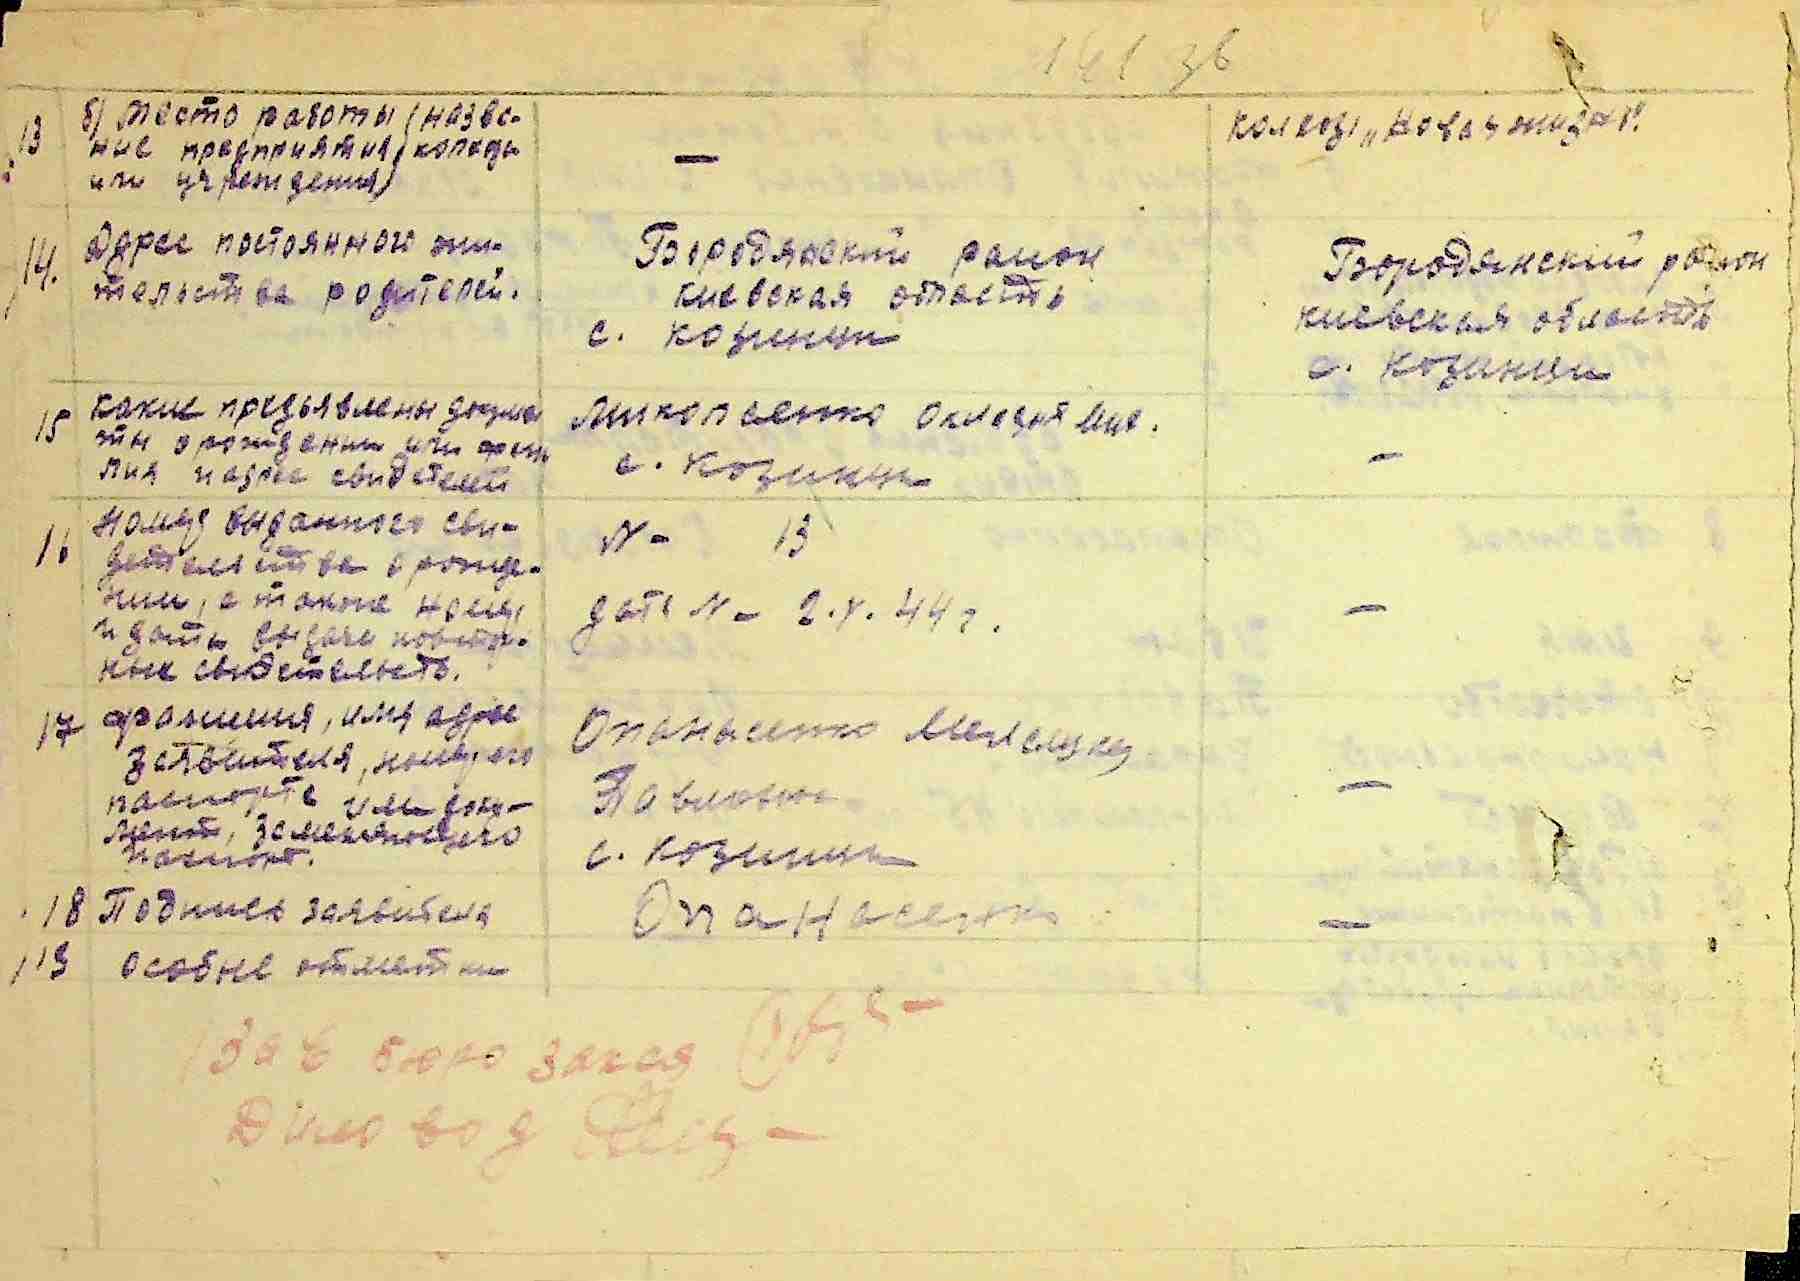 141 зв
13 б) Место работы (назва-
ние предприятия, колхоза
или учреждения)
—
колхоз „Новая жизнь"
14. Адрес постоянного жи-
тельства родителей.
Бородянский район
киевская область
с. козинци
Бородянский район
киевская область
с. козинци
15 какие предъявлены докумен
ты о рождении или фами
лия и адрес свидетелей
с. козинци
—
16 Номер выданного сви-
детельства о рожде-
нии, а также номер
и даты выдачи повтор-
ных свидетельств.
N - 13
дата N - 2.V.44 г.
—
17 фамилия, имя адрес
заявителя, номер его
паспорта или доку-
мент, заменяющего
паспорт.
Опанасенко
Павловна
с. козинци
—
18 Подпись заявителя
Опанасенко
—
19 особые отметки
Зав бюро загса
Діловод